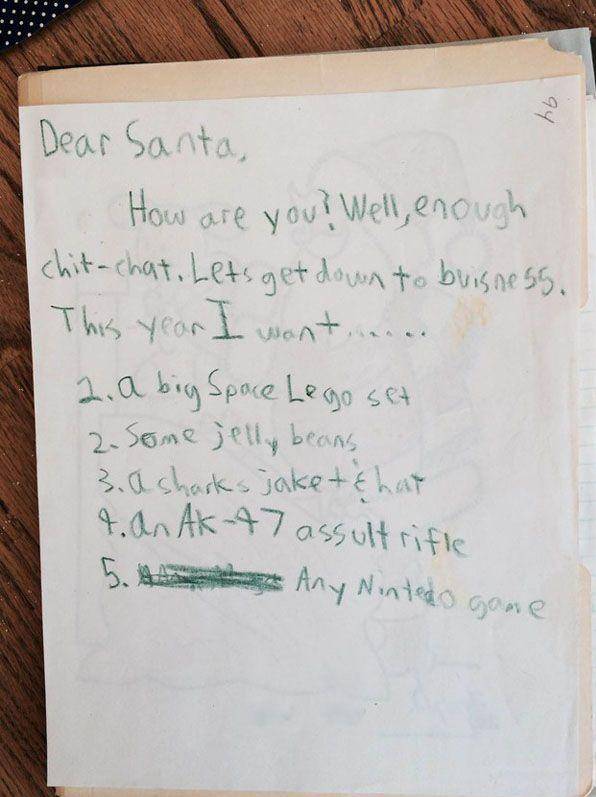 94
Dear Santa,
How are you? Well, enough
chit-chat. Lets get down to buisness.
This year I want......
1. a big Space Lego set
2. Some jelly beans
3. a sharks jaket & hat
4. an AK-47 assult rifle
5. Any Nintedo game